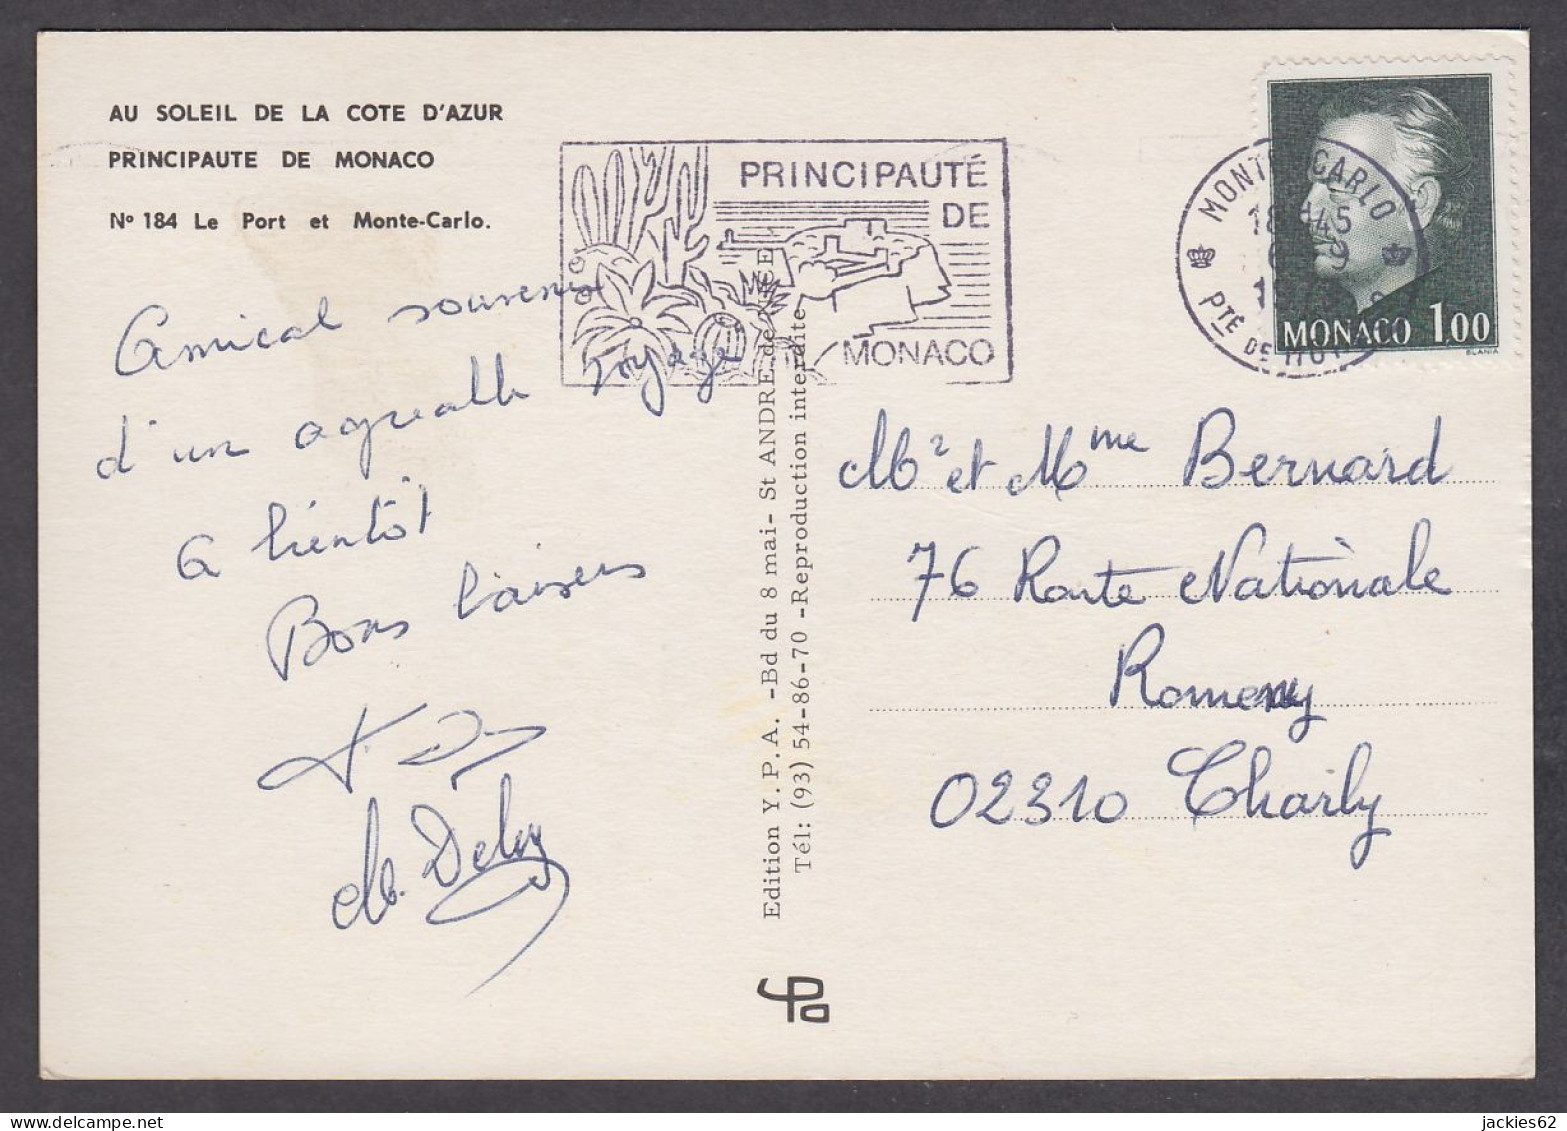 AU SOLEIL DE LA COTE D'AZUR
PRINCIPAUTE DE MONACO
N° 184 Le Port et Monte-Carlo.
PRINCIPAUTÉ
DE
MONACO
MONTE-CARLO
18H45
PTÉ DE
MONACO 1,00
SLANIA
Amical souvenir
d'un agreable voyage
a bientôt
Bons baisers
M. Delvy
Edition Y.P.A. -Bd du 8 mai- St ANDRE de
Tél: (93) 54-86-70 -Reproduction interdite
Mr et Mme Bernard
76 Route Nationale
Romeny
02310 Charly
jackies62